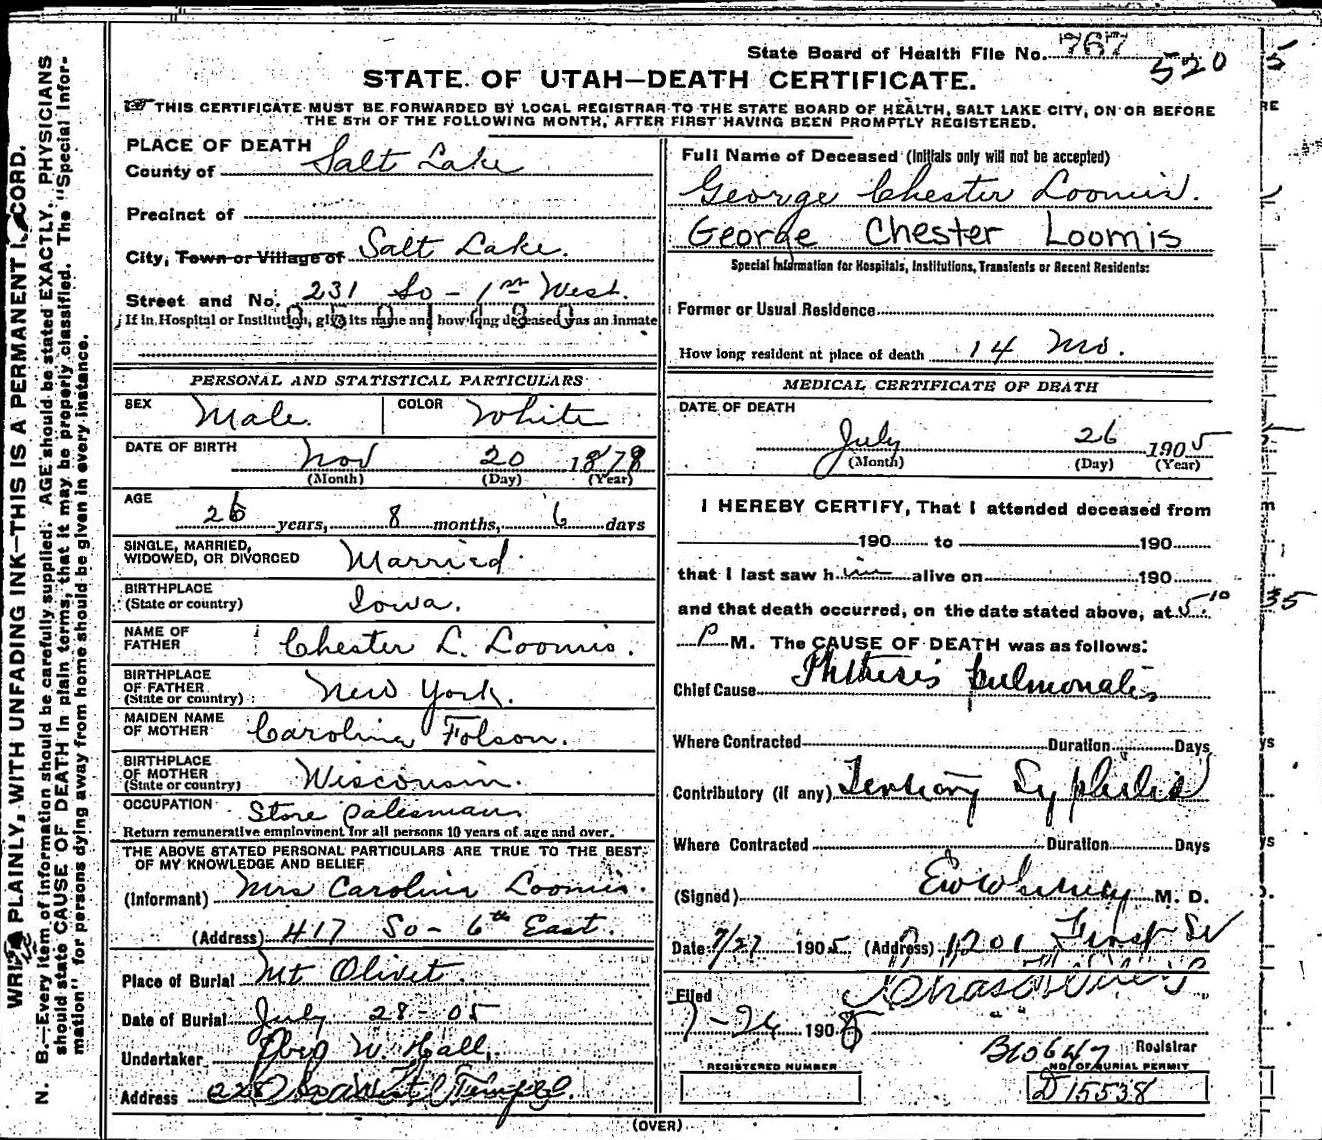 State Board of Health File No. 767
520
STATE OF UTAH—DEATH CERTIFICATE.
THIS CERTIFICATE MUST BE FORWARDED BY LOCAL REGISTRAR TO THE STATE BOARD OF HEALTH, SALT LAKE CITY, ON OR BEFORE
THE 5TH OF THE FOLLOWING MONTH, AFTER FIRST HAVING BEEN PROMPTLY REGISTERED.
PLACE OF DEATH
County of Salt Lake
Precinct of
City, Town or Village of Salt Lake.
Street and No. 231 So - 1st West.
If in Hospital or Institution, give its name and how long deceased was an inmate
PERSONAL AND STATISTICAL PARTICULARS
SEX Male. COLOR White
DATE OF BIRTH Nov 20 1878
(Month) (Day) (Year)
AGE
26 years, 8 months, 6 days
SINGLE, MARRIED,
WIDOWED, OR DIVORCED Married.
BIRTHPLACE
(State or country) Iowa.
NAME OF
FATHER Chester L. Loomis.
BIRTHPLACE
OF FATHER
(State or country) New York.
MAIDEN NAME
OF MOTHER Carolina Folson.
BIRTHPLACE
OF MOTHER
(State or country) Wisconsin.
OCCUPATION Store Salesman
Return remunerative employment for all persons 10 years of age and over.
THE ABOVE STATED PERSONAL PARTICULARS ARE TRUE TO THE BEST
OF MY KNOWLEDGE AND BELIEF
(Informant) Mrs Carolina Loomis.
(Address) 417 So - 6th East.
Place of Burial Mt Olivet.
Date of Burial July 28 - 05
Undertaker W. Hall,
Address 228 West Temple.
Full Name of Deceased (Initials only will not be accepted)
George Chester Loomis.
George Chester Loomis
Special Information for Hospitals, Institutions, Transients or Recent Residents:
Former or Usual Residence
How long resident at place of death 14 Mo.
MEDICAL CERTIFICATE OF DEATH
DATE OF DEATH
July 26 1905
(Month) (Day) (Year)
I HEREBY CERTIFY, That I attended deceased from
190 to 190
that I last saw him alive on 190
and that death occurred, on the date stated above, at 5:10
P M. The CAUSE OF DEATH was as follows:
Chief Cause Phthisis pulmonalis
Where Contracted Duration Days
Contributory (if any) Tertiary Syphilis
Where Contracted Duration Days
(Signed) M. D.
Date 7/27 1905 (Address) 1201 First St
Filed
7-26 1905
Registrar
B10647
REGISTERED NUMBER
NO OF BURIAL PERMIT
D15538
(OVER)
WRITE PLAINLY, WITH UNFADING INK—THIS IS A PERMANENT RECORD.
N. B.—Every item of information should be carefully supplied. AGE should be stated EXACTLY. PHYSICIANS
should state CAUSE OF DEATH in plain terms, that it may be properly classified. The "Special Infor-
mation" for persons dying away from home should be given in every instance.